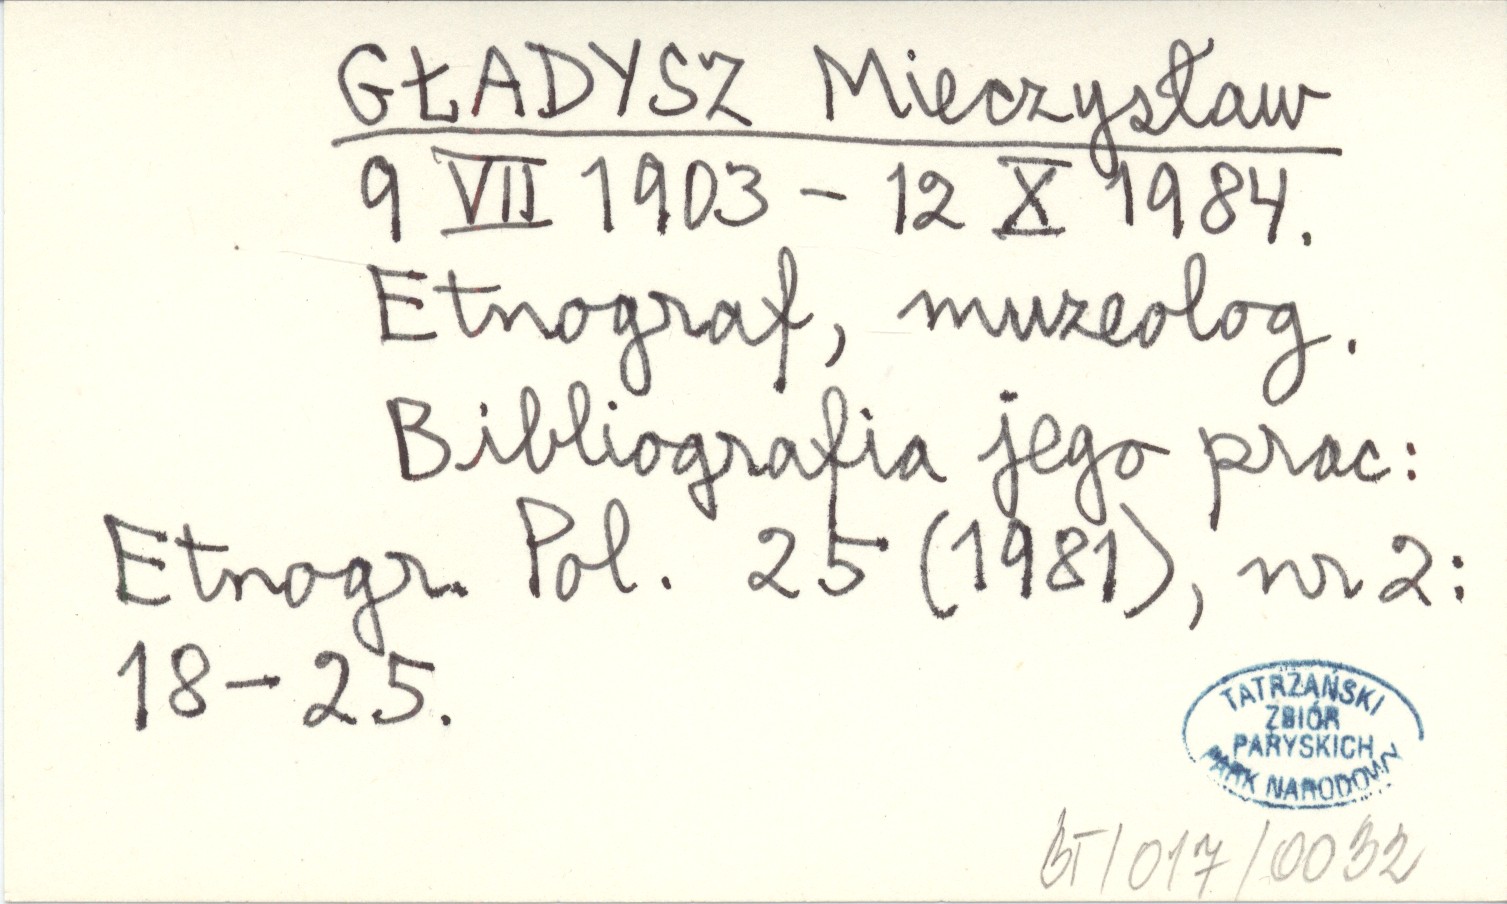 GŁADYSZ Mieczysław
9 VII 1903 – 12 X 1984.
Etnograf, muzeolog.
Bibliografia jego prac:
Etnogr. Pol. 25 (1981), nr 2:
18–25.
TATRZAŃSKI
ZBIÓR
PARYSKICH
PARK NARODOWY
BT/017/0032